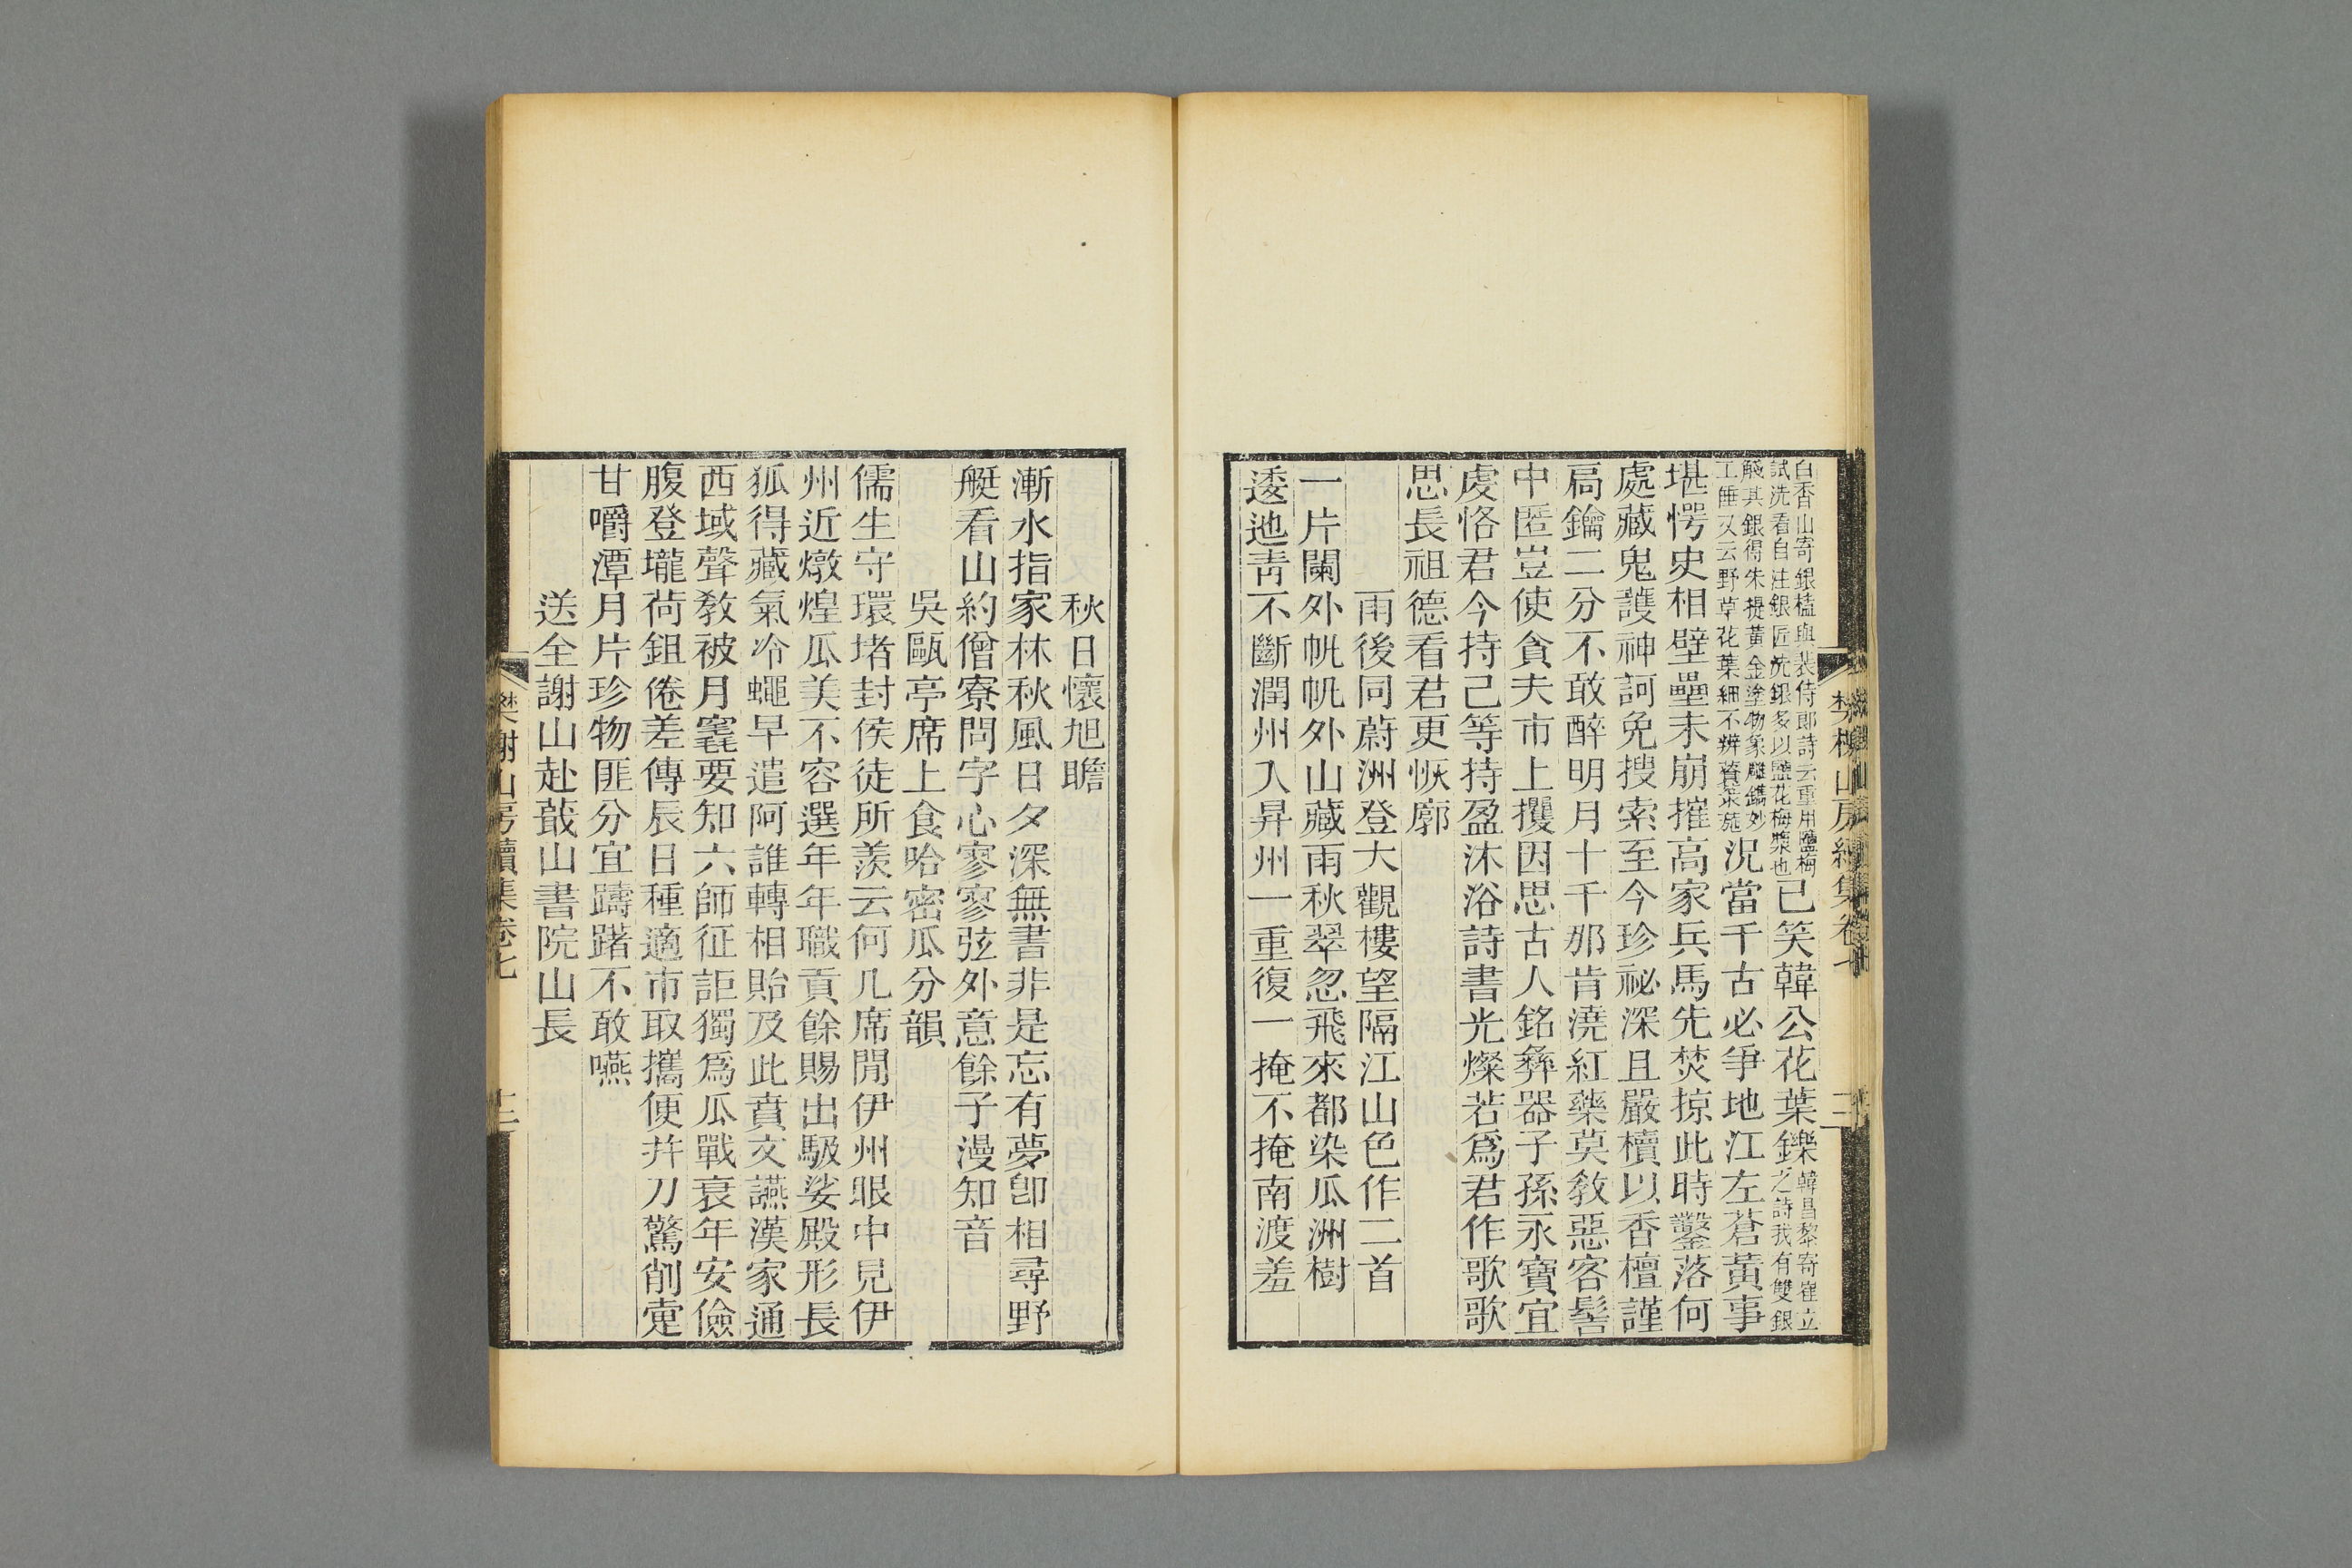 白香山寄銀榼與裴侍郎詩云重用鹽梅
試洗看自注銀匠洗銀多以鹽花梅漿也
已笑韓公花葉鑠
韓昌黎寄崔立
之詩我有雙銀
觴其銀得朱提黃金塗物象雕鐫妙
工倕又云野草花葉細不辨薋菉葹
況當千古必爭地江左蒼黃事
堪愕史相壁壘未崩摧高家兵馬先焚掠此時鑿落何
處藏鬼護神訶免搜索至今珍祕深且嚴櫝以香檀謹
扃鑰二分不敢醉明月十千那肯澆紅藥莫敎惡客髻
中匿豈使貪夫市上攫因思古人銘彝器子孫永寶宜
虔恪君今持己等持盈沐浴詩書光燦若爲君作歌歌
思長祖德看君更恢廓
雨後同蔚洲登大觀樓望隔江山色作二首
一片闌外帆帆外山藏雨秋翠忽飛來都染瓜洲樹
逶迤靑不斷潤州入昇州一重復一掩不掩南渡羞
秋日懷旭瞻
漸水指家林秋風日夕深無書非是忘有夢卽相尋野
艇看山約僧寮問字心寥寥弦外意餘子漫知音
吳甌亭席上食哈密瓜分韻
儒生守環堵封侯徒所羨云何几席閒伊州眼中見伊
州近燉煌瓜美不容選年年職貢餘賜出馺娑殿形長
狐得藏氣冷蠅早遣阿誰轉相貽及此賁文讌漢家通
西域聲敎被月竁要知六師征詎獨爲瓜戰衰年安儉
腹登壠荷鉏倦差傳辰日種適市取攜便幷刀驚削寷
甘嚼潭月片珍物匪分宜躊躇不敢嚥
送全謝山赴蕺山書院山長
樊榭山房續集卷七